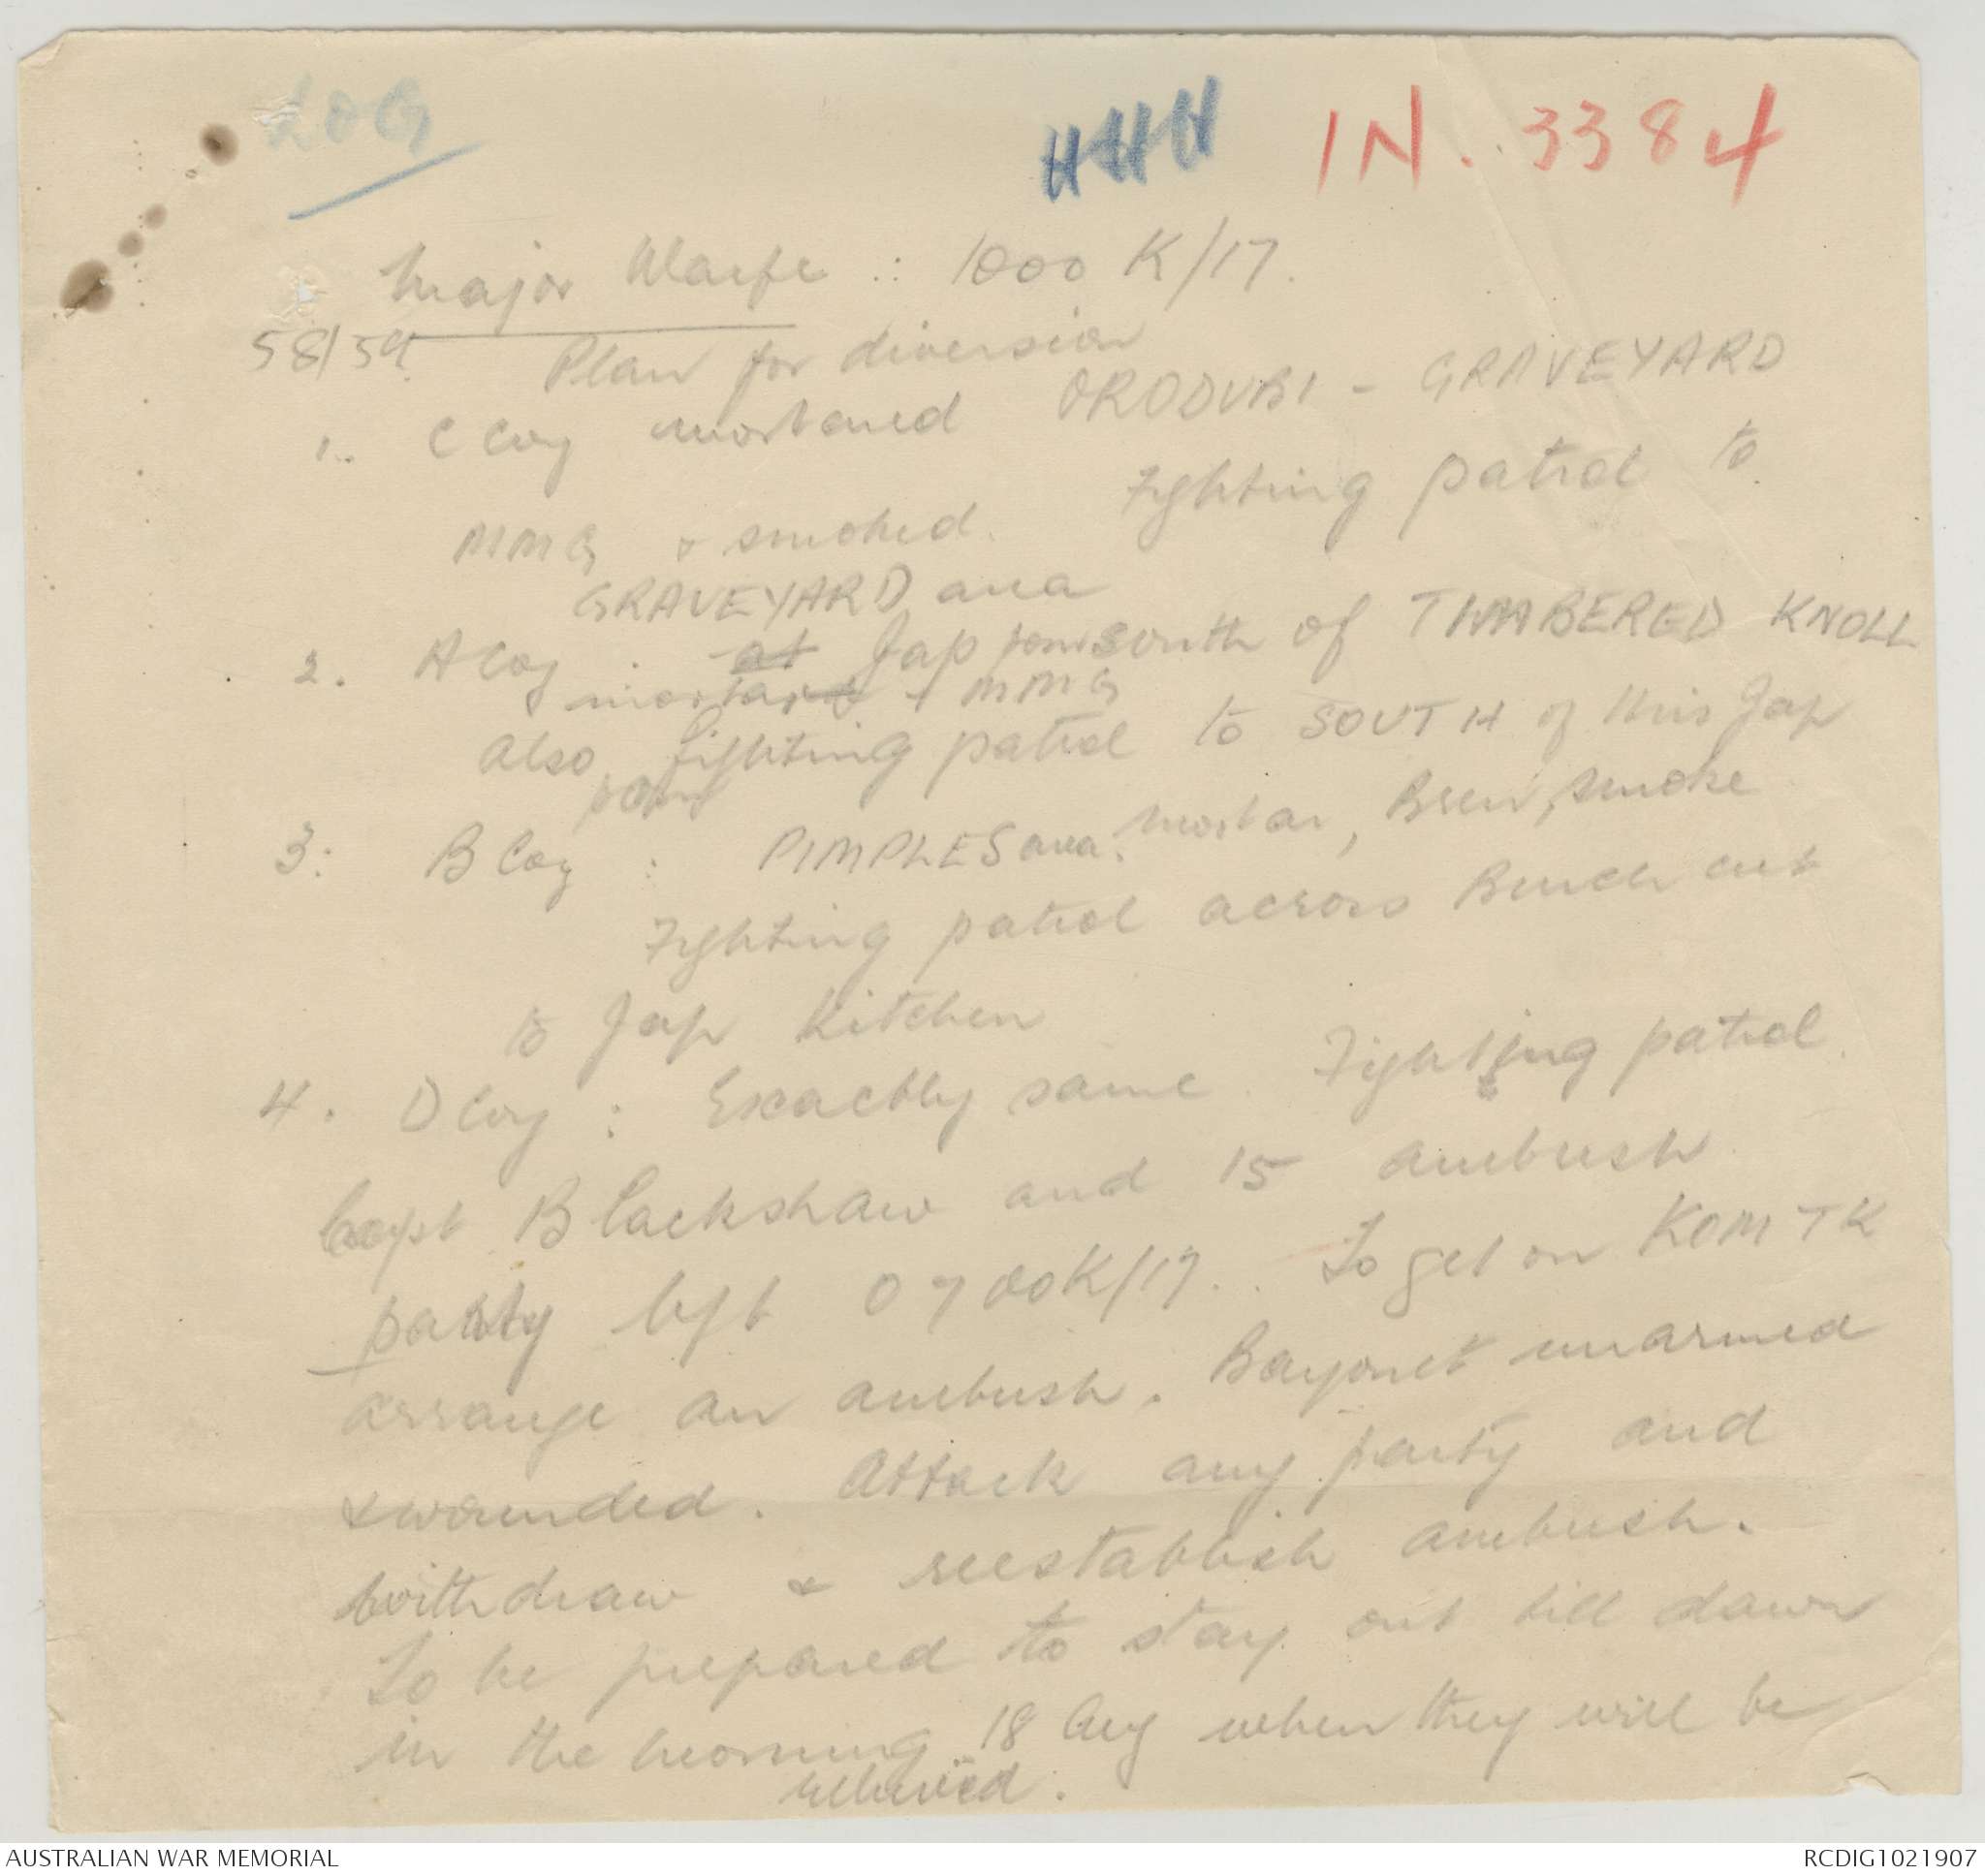 LOG
HHH IN. 3384
Major Warfe : 1000 K/17.
58/59. Plan for diversion
1. C Coy mortared ORODUBI - GRAVEYARD
MMG & smoked. Fighting patrol to
GRAVEYARD area
2. A Coy : at Jap posn south of TIMBERED KNOLL
mortars + MMG
Also fighting patrol to SOUTH of this Jap
posn
3: B Coy : PIMPLES area. Mortar, Bren, smoke
Fighting patrol across Bench cut
to Jap Kitchen
4. D Coy : Exactly same. Fighting patrol.
Capt Blackshaw and 15 ambush
party left 0700K/17. To get on KOM TK
arrange an ambush. Bayonet unarmed
& wounded. Attack any party and
withdraw & reestablish ambush.
To be prepared to stay out till dawn
in the morning 18 Aug when they will be
relieved.
AUSTRALIAN WAR MEMORIAL RCDIG1021907